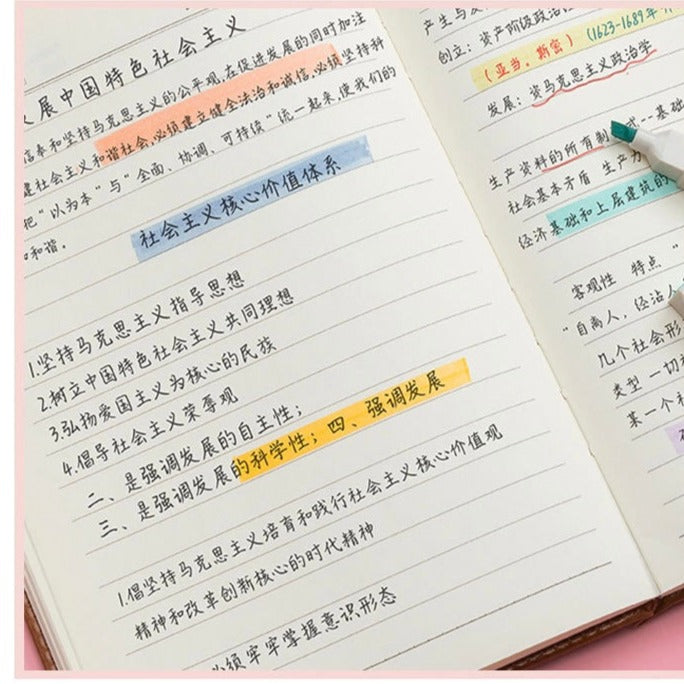 展中国特色社会主义
信奉和坚持马克思主义的公平观,在促进发展的同时加注
建社会主义和谐社会,必须建立健全法治和诚信,必须坚持科
把"以为本"与"全面、协调、可持续"统一起来,使我们的
和谐。
社会主义核心价值体系
1.坚持马克思主义指导思想
2.树立中国特色社会主义共同理想
3.弘扬爱国主义为核心的民族
4.倡导社会主义荣辱观
二、是强调发展的自主性;
三、是强调发展的科学性;四、强调发展
1.倡坚持马克思主义培育和践行社会主义核心价值观
精神和改革创新核心的时代精神
必须牢牢掌握意识形态
产生与发
创立:资产阶级政治
(亚当,斯密)(1623-1689年
发展:资马克思主义政治学
生产资料的所有制 式--基础
社会基本矛盾 生产力
经济基础和上层建筑的
客观性 特点 "
"自离人,经沾人
几个社会形
类型 一切
某一个社